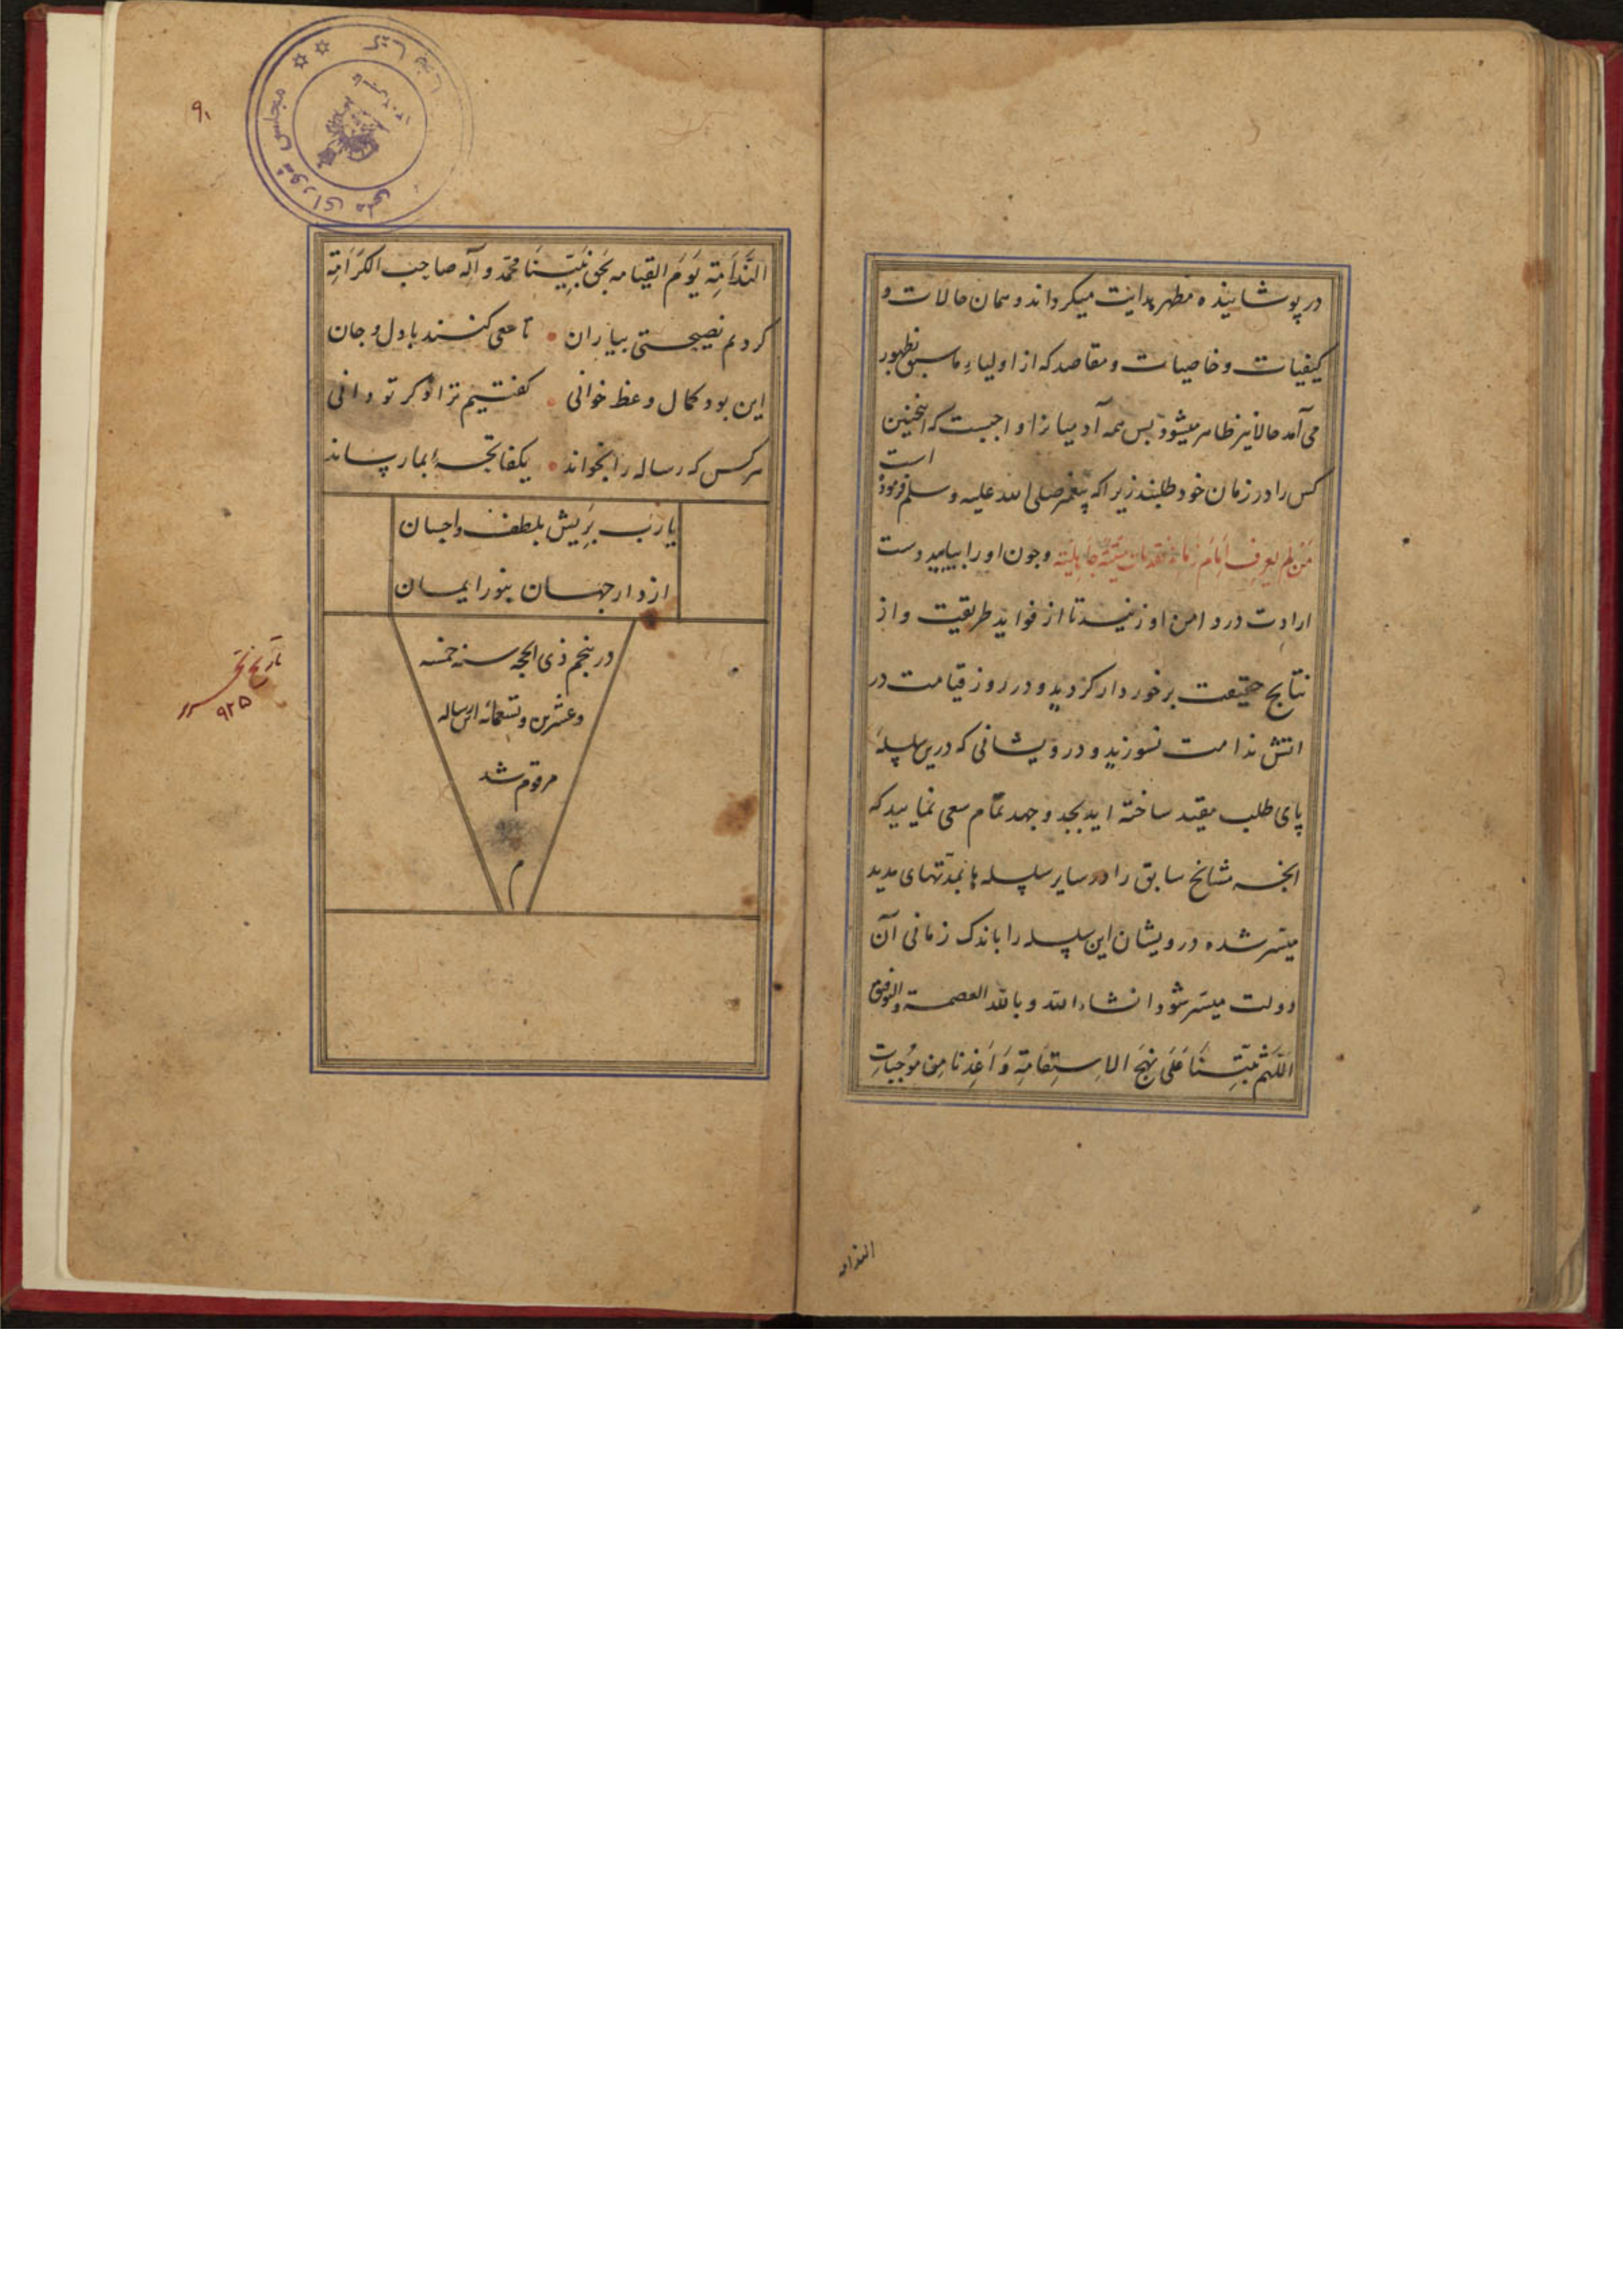 در پوشانیده مظهر هدایت میکرداند و همان حالات و
کیفیات و خاصیات و مقاصد که از اولیاء ما سبق بظهور
می آمد حالا نیز ظاهر میشود پس همه آدمیانرا واجبست که اینچنین
کس را در زمان خود طلبند زیرا که پیغمبر صلی الله علیه و سلم فرموده
است
مَن لم یَعرِف اِمَامَ زَمَانه فقد مات مِیتَةً جَاهِلِیَّة و چون او را بیابید دست
ارادت در دامن او زنید تا از فواید طریقت و از
نتایج حقیقت برخوردار کردید و در روز قیامت در
اتش ندامت نسوزید و درویشانی که درین سلسله
پای طلب مقید ساخته اید بجد و جهد تمام سعی نمایید که
انچه مشایخ سابق را در سایر سلسله ها بمدّتهای مدید
میسّر شده درویشان این سلسله را باندک زمانی آن
دولت میسّر شود انشاءالله و بالله العصمة والتوفیق
اللّهُمَّ ثَبِّتنَا عَلَی نَهجِ الاِستِقَامَةِ وَ اَعِذنا مِن مُوجِبَاتِ
الندامه
۹۱
مجلس شورای ملی
النَّدَامَةِ یَومَ القیامه بِحَقِ نَبِیِّنَا محمّد و آلِه صاحِب الکَرَامَةِ
کردم نصیحتی بیاران تا سعی کنند با دل و جان
این بود کمال وعظ خوانی کفتیم ترا تو کر تو دانی
هر کس که رساله را بخواند یک فاتحهٔ بما رساند
یا رَب بَرِیش بلطف و احسان
از دار جهان بنور ایمان
در پنجم ذی الحجه سنه خمسه
وعشرین وتسعمائه این رساله
مرقوم شد
م
تاریخ تحریر
۹۲۵